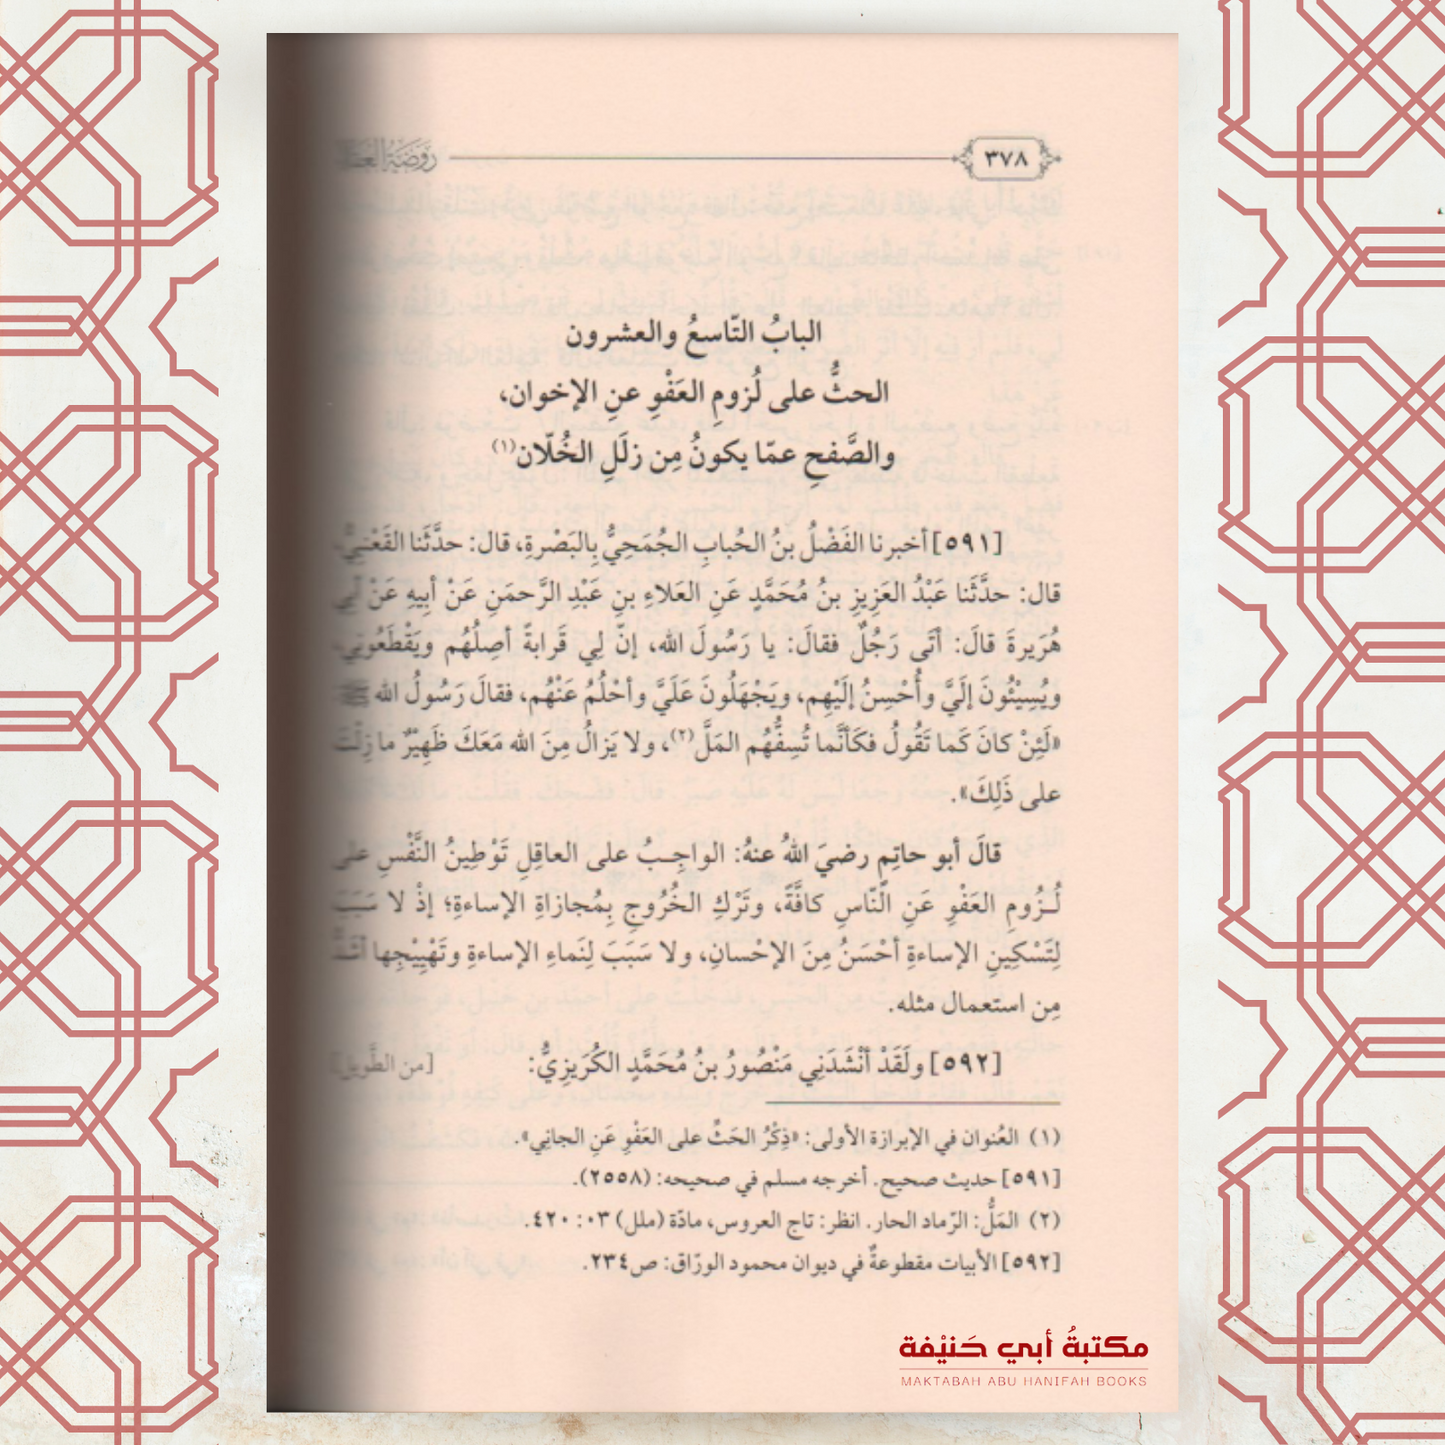 ٣٧٨
رَوْضَةُ العُقَلَاء
البابُ التّاسعُ والعشرون
الحثُّ على لُزومِ العَفْوِ عنِ الإخوان،
والصَّفحِ عمّا يكونُ مِن زلَلِ الخُلّان(١)
[٥٩١] أخبرنا الفَضْلُ بنُ الحُبابِ الجُمَحِيُّ بِالبَصْرةِ، قال: حدَّثَنا القَعْنبِيُّ،
قال: حدَّثَنا عَبْدُ العَزِيزِ بنُ مُحَمَّدٍ عَنِ العَلاءِ بنِ عَبْدِ الرَّحمَنِ عَنْ أبِيهِ عَنْ أبِي
هُرَيرةَ قالَ: أتَى رَجُلٌ فقالَ: يا رَسُولَ الله، إنّ لِي قَرابةً أصِلُهُم ويَقْطَعُونِي،
ويُسِيْئُونَ إلَيَّ وأُحْسِنُ إلَيْهِم، ويَجْهَلُونَ عَلَيَّ وأحْلُمُ عَنْهُم، فقالَ رَسُولُ الله ﷺ:
«لَئِنْ كانَ كَما تَقُولُ فكَأنَّما تُسِفُّهُم المَلَّ(٢)، ولا يَزالُ مِنَ الله مَعَكَ ظَهِيْرٌ ما زِلْتَ
على ذَلِكَ».
قالَ أبو حاتِمٍ رضيَ اللهُ عنهُ: الواجِـبُ على العاقِلِ تَوْطِينُ النَّفْسِ على
لُـزُومِ العَفْوِ عَنِ النّاسِ كافَّةً، وتَرْكِ الخُرُوجِ بِمُجازاةِ الإساءةِ؛ إذْ لا سَبَبَ
لِتَسْكِينِ الإساءةِ أحْسَنُ مِنَ الإحْسانِ، ولا سَبَبَ لِنَماءِ الإساءةِ وتَهْيِيْجِها أشَدُّ
مِن استعمال مثله.
[٥٩٢] ولَقَدْ أنْشَدَنِي مَنْصُورُ بنُ مُحَمَّدٍ الكُرَيزِيُّ: [من الطَّويل]
(١) العُنوان في الإبرازة الأولى: «ذِكْرُ الحَثِّ على العَفْوِ عَنِ الجانِي».
[٥٩١] حديث صحيح. أخرجه مسلم في صحيحه: (٢٥٥٨).
(٢) المَلُّ: الرّماد الحار. انظر: تاج العروس، مادّة (ملل) ٠٣: ٤٢٠.
[٥٩٢] الأبيات مقطوعةٌ في ديوان محمود الورّاق: ص٢٣٤.
مكتبةُ أبي حَنيْفة
MAKTABAH ABU HANIFAH BOOKS